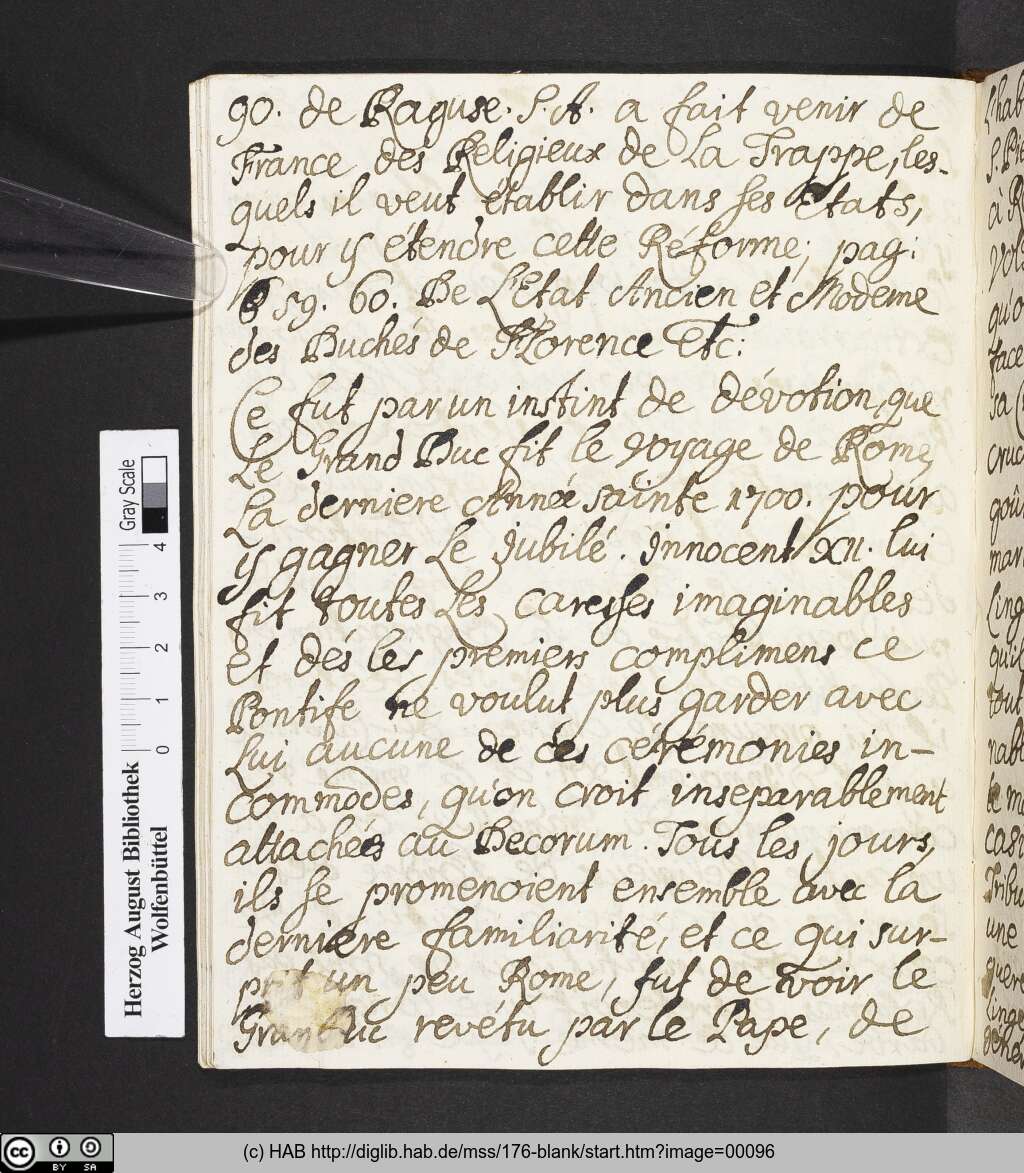 90. de Raguse. S. A. a fait venir de
France des Religieux de La Trappe, les-
quels il veut établir dans ses Etats,
pour y étendre cette Réforme; pag:
59. 60. De L'Etat Ancien et Moderne
des Duchés de Florence Etc:
Ce fut par un instint de dévotion, que
Le Grand Duc fit le voyage de Rome,
La derniere Année sainte 1700. pour
y gagner Le Jubilé. Innocent XII. lui
fit toutes Les caresses imaginables
et dés les premiers complimens ce
Pontife ne voulut plus garder avec
Lui aucune de ces cérémonies in-
commodes, qu'on croit inseparablement
attachées au Decorum. Tous les jours,
ils se promenoient ensemble avec la
derniére familiarité, et ce qui sur-
prit un peu Rome, fut de voir le
Grand Duc revétu par le Pape, de
Herzog August Bibliothek
Wolfenbüttel
Gray Scale
0 1 2 3 4
cc BY SA
(c) HAB http://diglib.hab.de/mss/176-blank/start.htm?image=00096